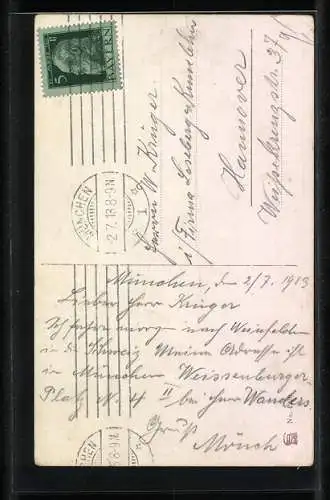 5
BAYERN
MÜNCHEN
2.7.13.8-9.N.
1
Herrn W. Krüger
i/Firma
Hannover
Weissekreuzstr. 37
München, d. 2/7. 1913
Lieber Herr Krüger
Ich fahre morgen nach Weinfelden
in die Schweiz Meine Adresse ist
in München Weissenburger-
Platz No. 4 II bei Herr Wanders.
Gruß
Mönch
MÜNCHEN
13.8-9.N.